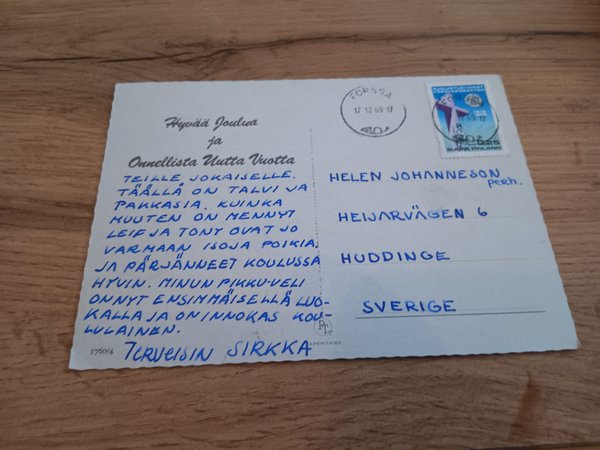 Hyvää Joulua
ja
Onnellista Uutta Vuotta
TEILLE JOKAISELLE.
TÄÄLLÄ ON TALVI JA
PAKKASIA. KUINKA
MUUTEN ON MENNYT
LEIF JA TONY OVAT JO
VARMAAN ISOJA POIKIA.
JA PÄRJÄNNEET KOULUSSA
HYVIN. MINUN PIKKU-VELI
ON NYT ENSIMMÄISELLÄ LUO-
KALLA JA ON INNOKAS KOU-
LULAINEN.
TERVEISIN SIRKKA
1760/4
FORSSA
17.12.69.17
PUOLUSTUSVOIMAT
FÖRSVARSMAKTEN
0,25
SUOMI FINLAND
HELEN JOHANNESON
perh.
HEIJARVÄGEN 6
HUDDINGE
SVERIGE